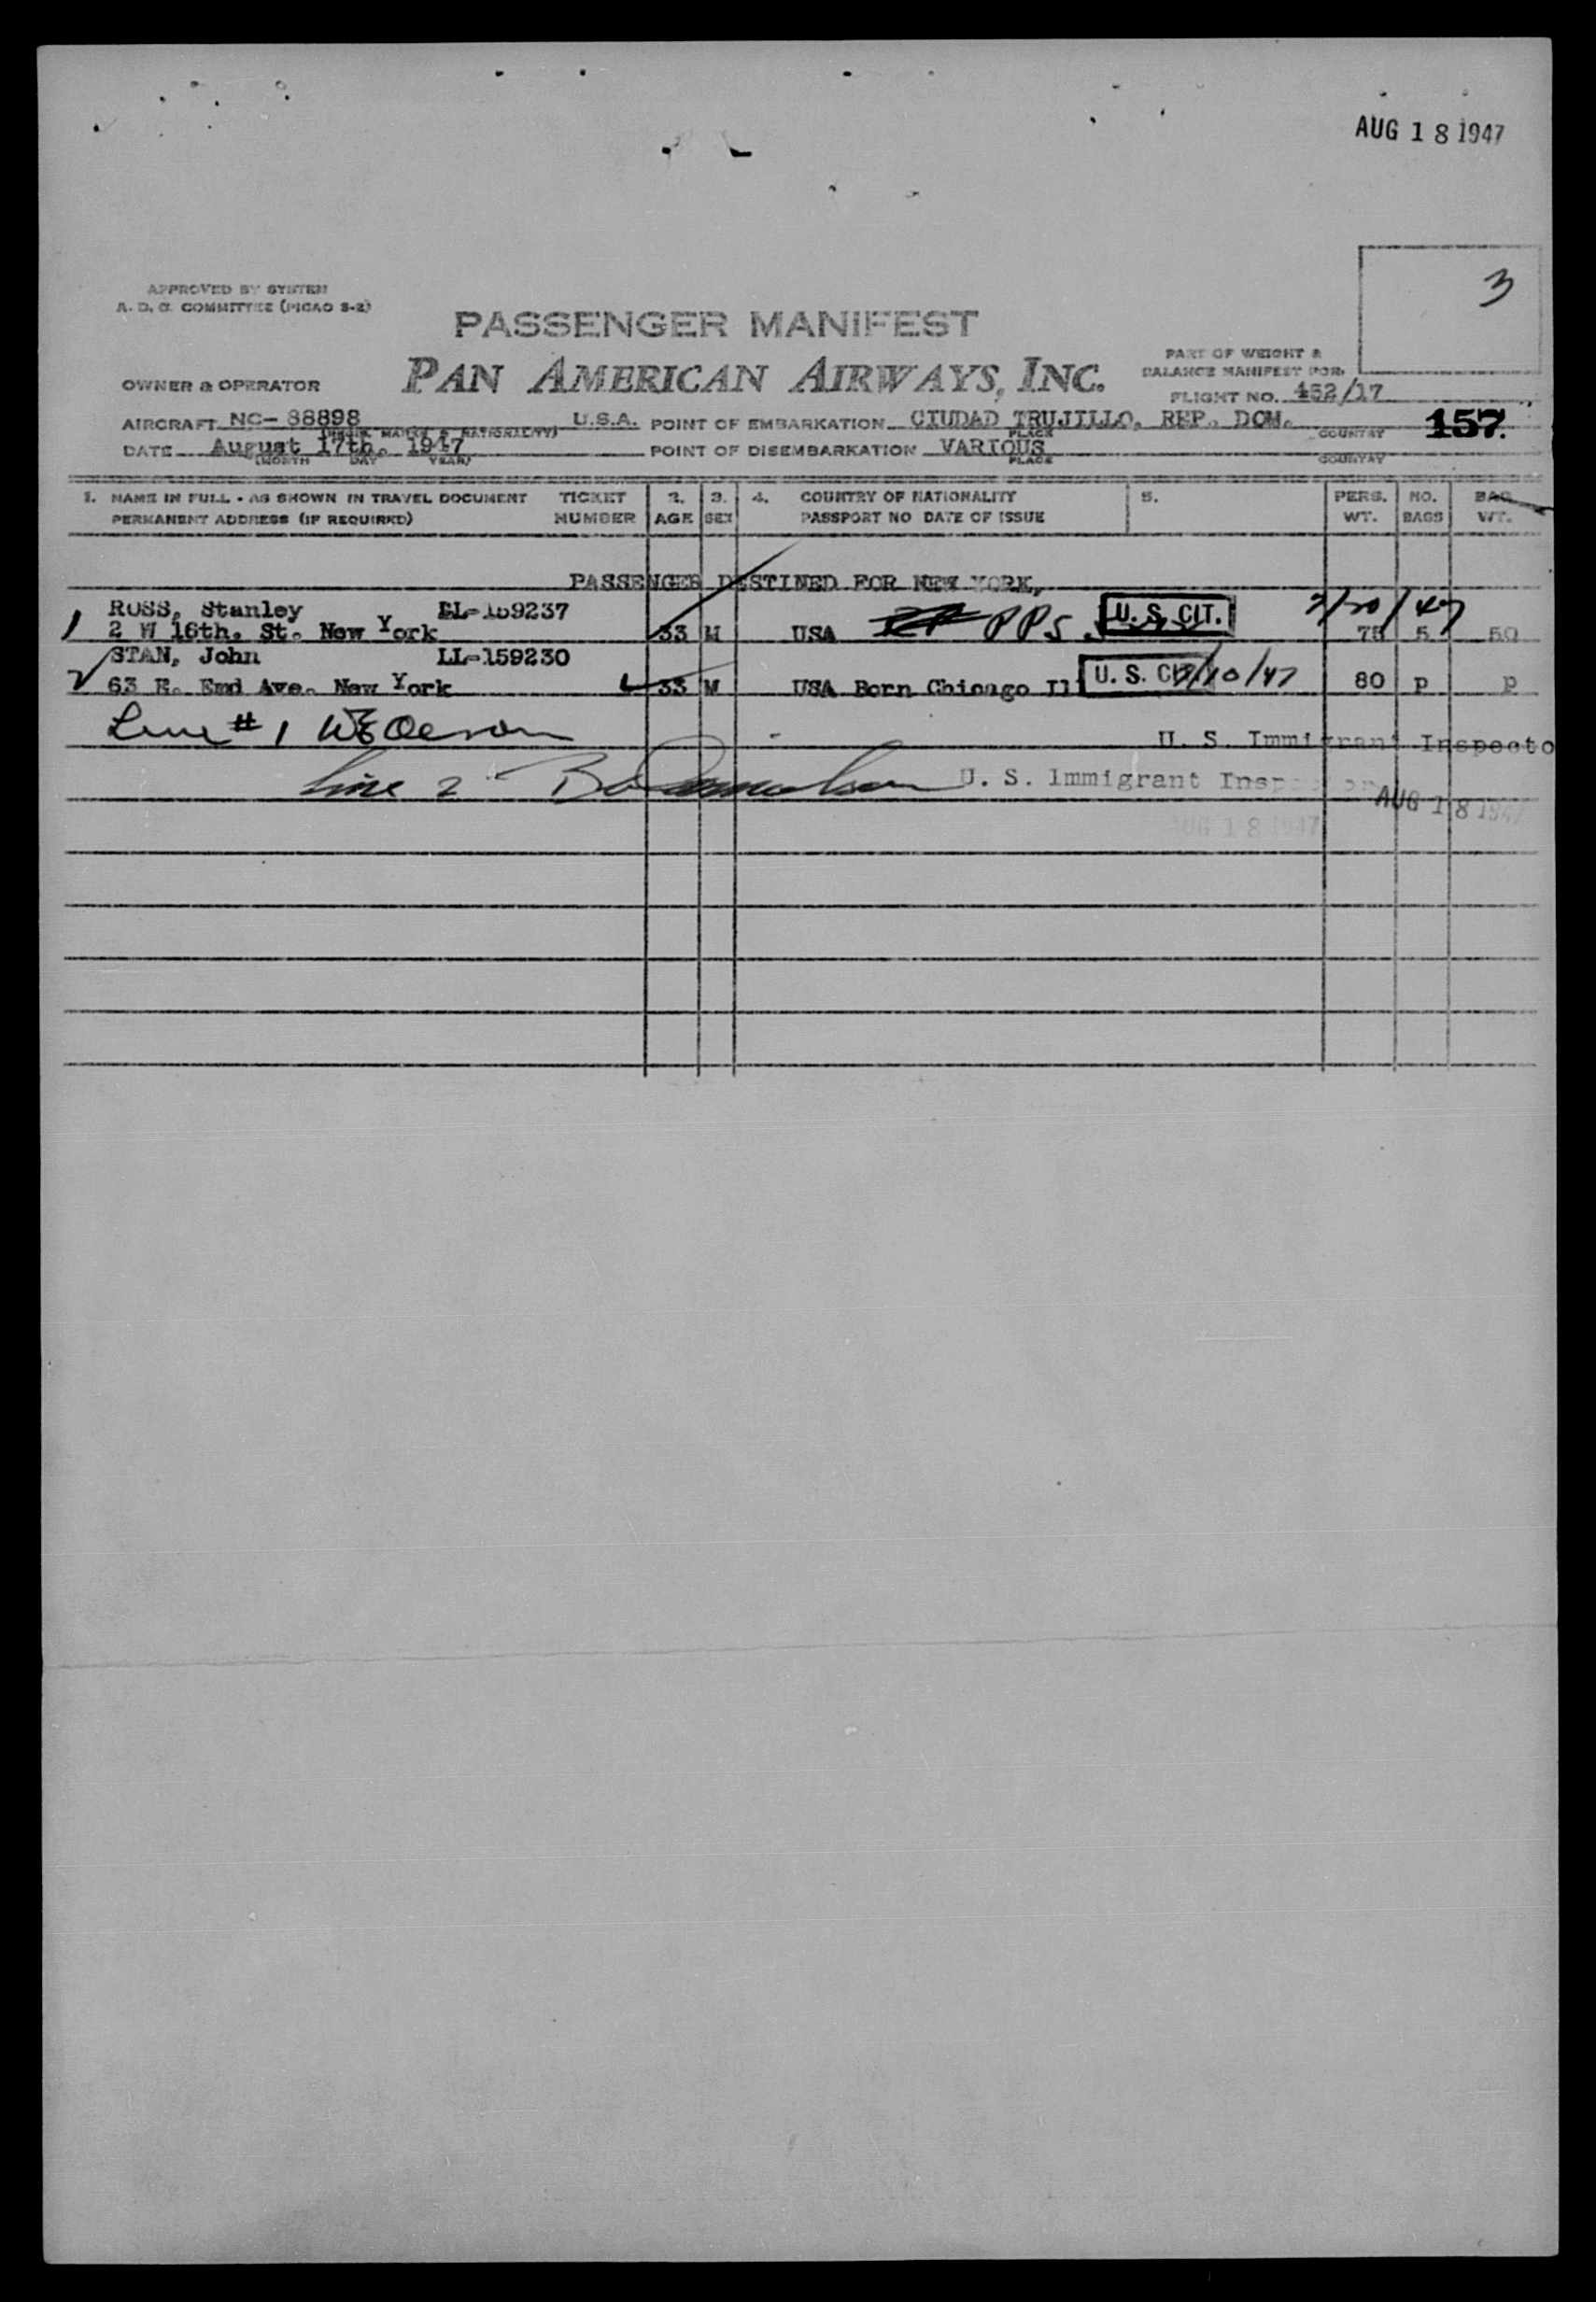 AUG 18 1947
3
APPROVED BY SYSTEM
A. D. C. COMMITTEE (PICAO S-2)
PASSENGER MANIFEST
PAN AMERICAN AIRWAYS, INC.
PART OF WEIGHT &
BALANCE MANIFEST FOR
OWNER & OPERATOR
FLIGHT NO. 452/17
AIRCRAFT NC- 88898 U.S.A. POINT OF EMBARKATION CIUDAD TRUJILLO, REP. DOM. 157
PLACE COUNTRY
DATE August 17th. 1947 POINT OF DISEMBARKATION VARIOUS
(MONTH DAY YEAR) PLACE COUNTRY
1. NAME IN FULL - AS SHOWN IN TRAVEL DOCUMENT TICKET 2. 3. 4. COUNTRY OF NATIONALITY 5. PERS. NO. BAG.
PERMANENT ADDRESS (IF REQUIRED) NUMBER AGE SEX PASSPORT NO DATE OF ISSUE WT. BAGS WT.
PASSENGER DESTINED FOR NEW YORK,
1 ROSS, Stanley LL-159237
2 W 16th. St. New York 33 M USA PPS U. S. CIT. 75 5 50
2 STAN, John LL-159230
63 E. End Ave. New York 33 M USA Born Chicago Ill U. S. CIT 80 p p
Line # 1
U. S. Immigrant Inspecto
Line 2 U. S. Immigrant Inspector
AUG 18 1947
AUG 18 1947